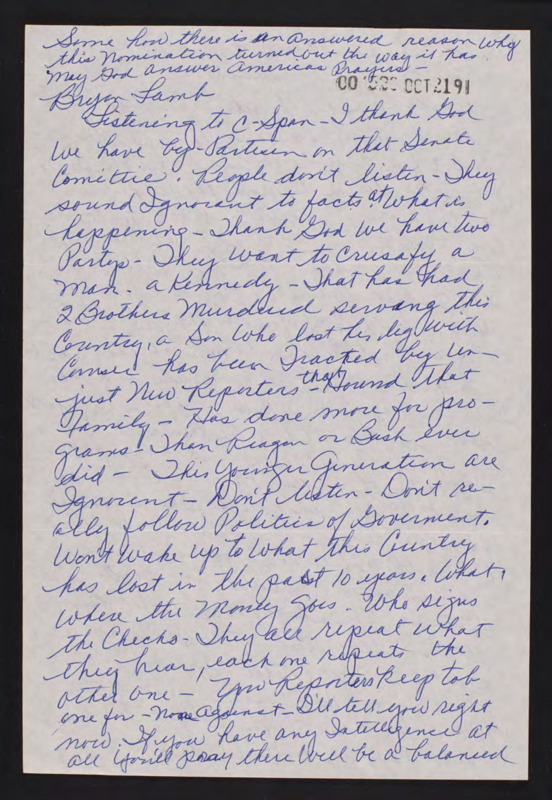 Some how there is an answered reason why
this Nomination turned out the way it has.
May God answer Americas Prayers
OCT 21 91
Bryon Lamb
Listening to C-Span - I thank God
we have by-Partisen on that Senate
Comittee. People don't listen - They
sound Ignorant to facts at what is
happening - Thank God we have two
Partys - They want to Crusafy a
man. a Kennedy - That has had
2 Brothers Murdered servang this
Country, a Son who lost his leg with
Canser - has been Tracked by un-
just New Reporters - that Hound that
Family - Has done more for pro-
grams - Than Reagan or Bush ever
did - This Younger Generation are
Ignorent - Don't listen - Don't re-
ally follow Politics of Goverment.
Won't wake up to what this Country
has lost in the past 10 years. What,
where the money goes. Who signs
the Checks - They all repeat what
they hear, each one repeats the
other one - You Reporters keep tab
one for - None against - I'll tell you right
now. If you have any Intelligence at
all You'll pray there will be a balanced